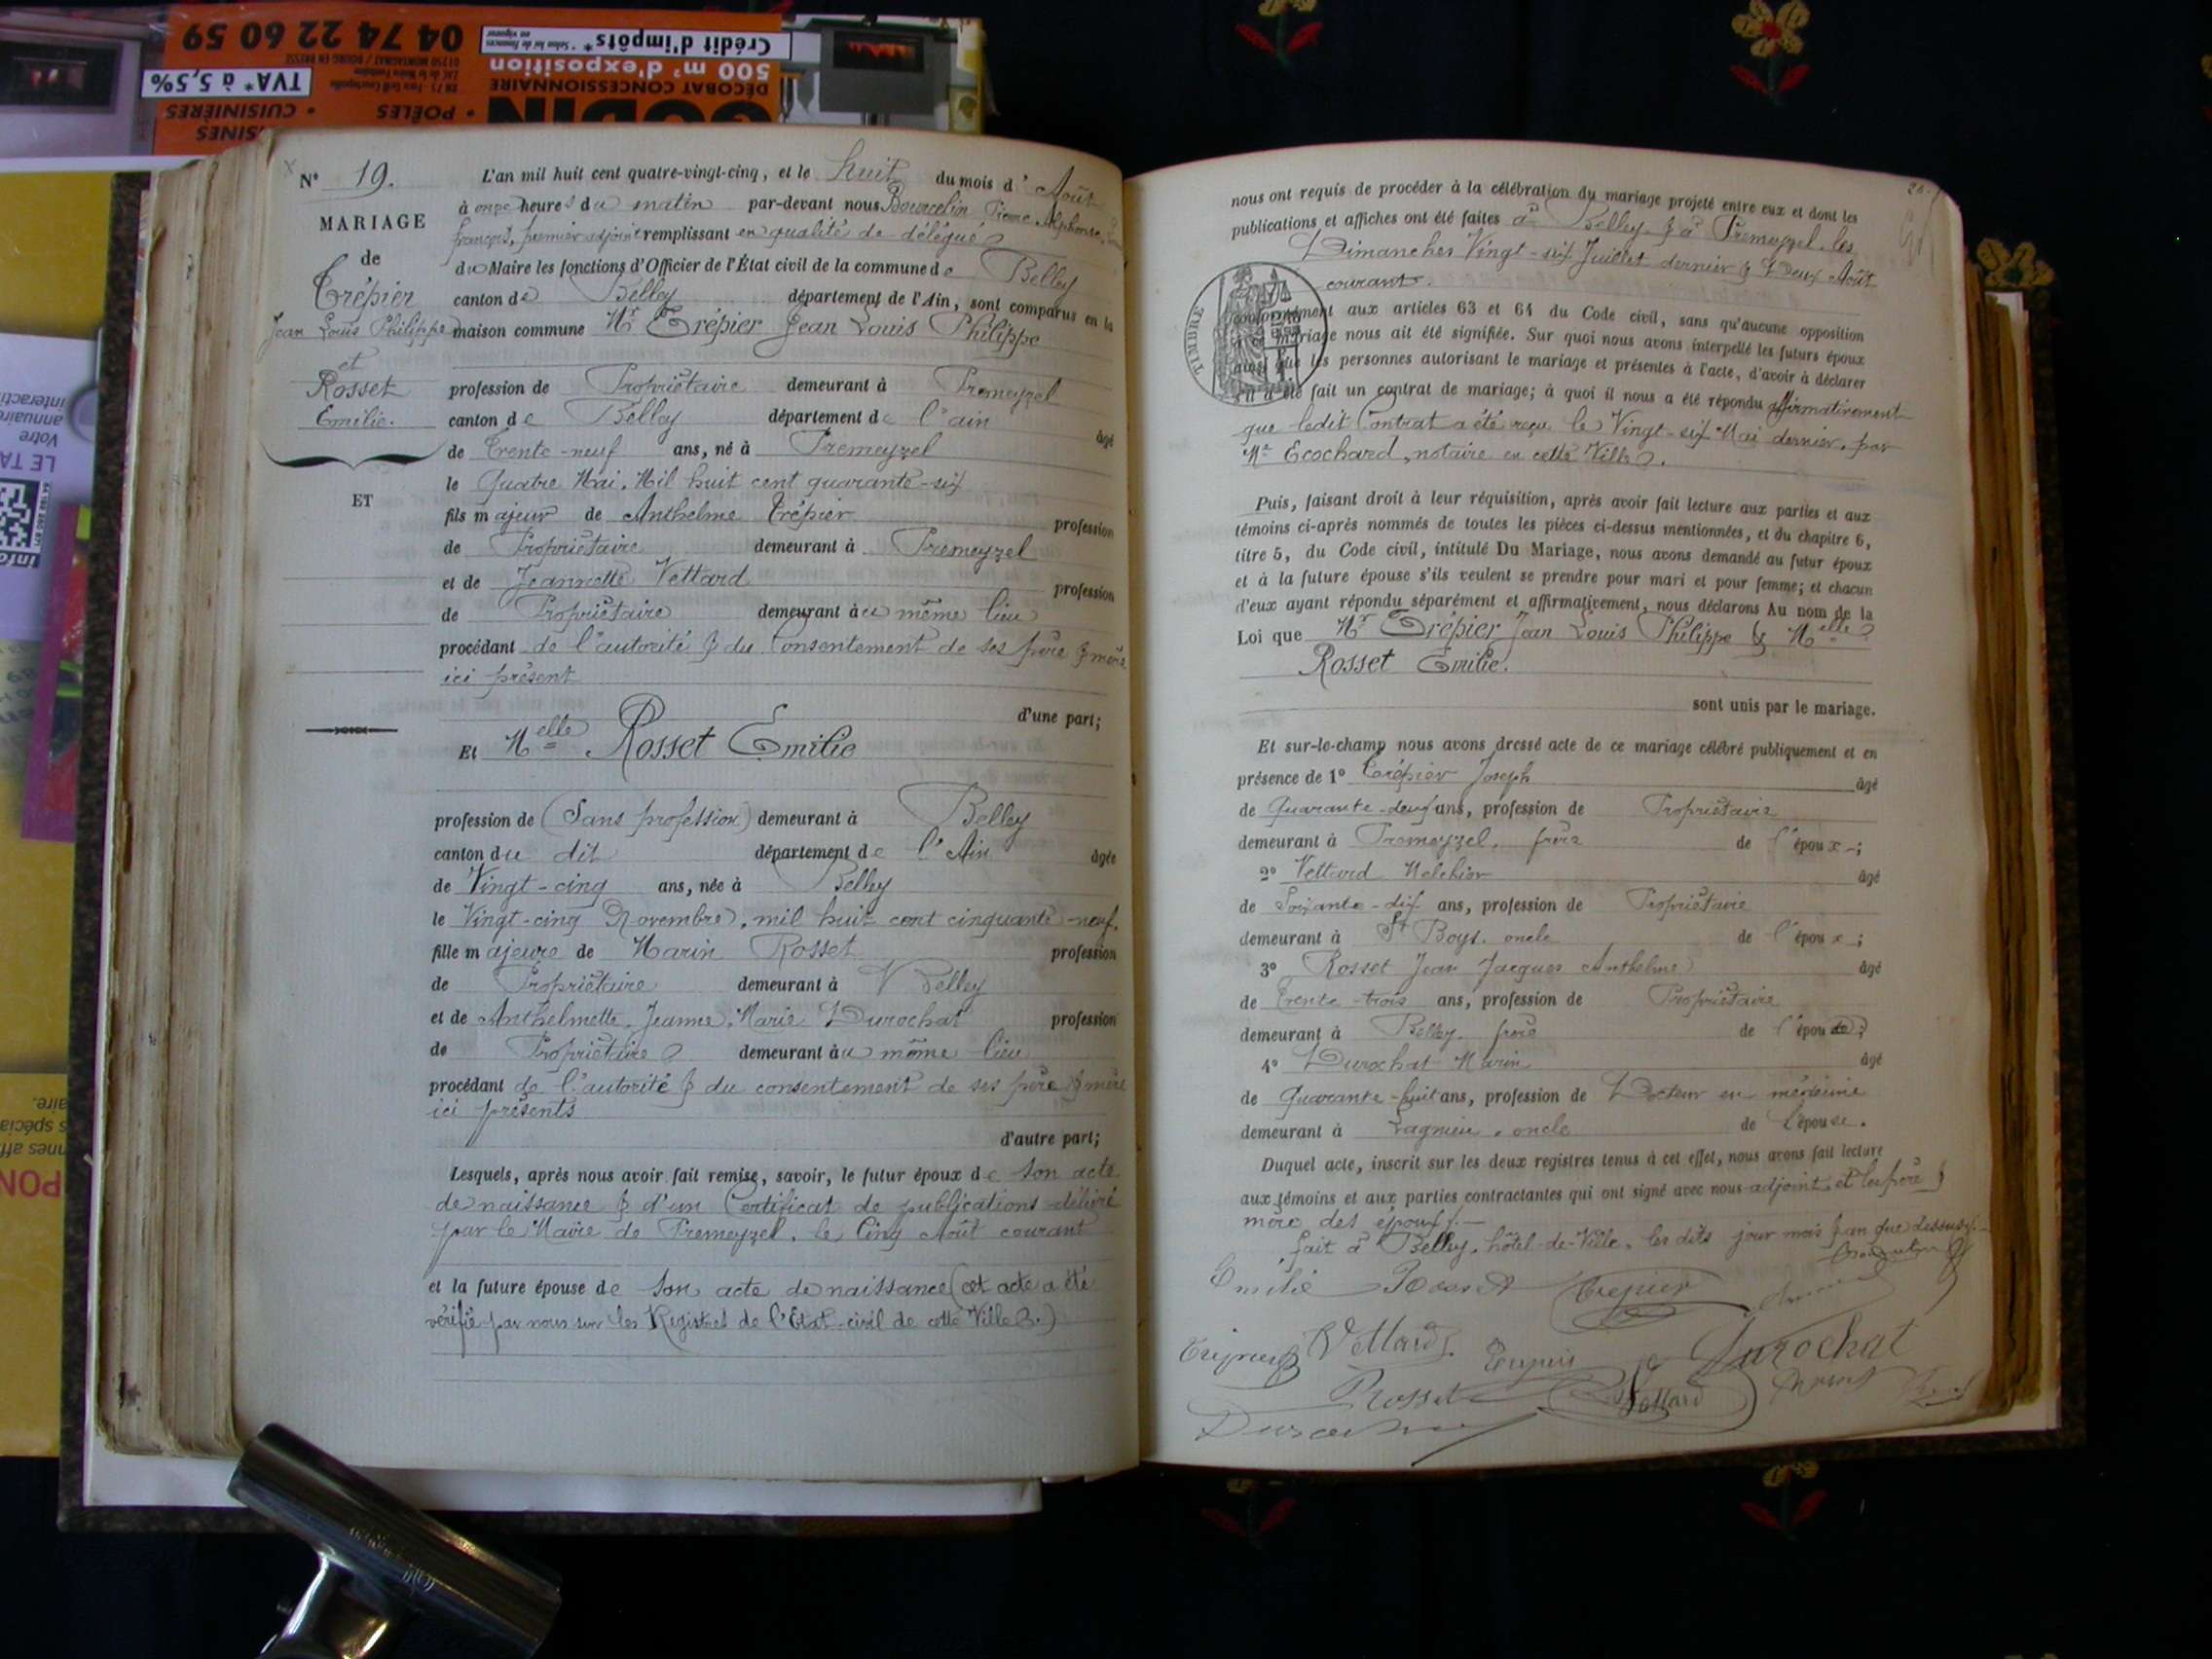 04 74 22 60 59
TVA* à 5,5%
Crédit d'impôts*
500 m² d'exposition
DÉCOBAT CONCESSIONNAIRE
GODIN
• POÊLES
• CUISINIÈRES
N° 19.
MARIAGE
de
Trépier
Jean Louis Philippe
et
Rosset
Emilie.
ET
L'an mil huit cent quatre-vingt-cinq, et le huit du mois d'Août
à onze heures du matin par-devant nous Bourcelin Pierre Alphonse
françois, premier adjoint remplissant en qualité de délégué
du Maire les fonctions d'Officier de l'État civil de la commune de Belley
canton de Belley département de l'Ain, sont comparus en la
maison commune Mr Trépier Jean Louis Philippe
profession de Propriétaire demeurant à Premeyzel
canton de Belley département de l'ain
âgé
de Trente-neuf ans, né à Premeyzel
le Quatre Mai, Mil huit cent quarante-six
fils majeur de Anthelme Trépier profession
de Propriétaire demeurant à Premeyzel
et de Jeannette Vettard profession
de Propriétaire demeurant au même lieu
procédant de l'autorité & du Consentement de ses père & mère
ici présent
d'une part;
Et Melle Rosset Emilie
profession de (Sans profession) demeurant à Belley
canton du dit département de l'Ain âgée
de Vingt-cinq ans, née à Belley
le Vingt-cinq Novembre, mil huit cent cinquante-neuf.
fille majeure de Marin Rosset profession
de Propriétaire demeurant à Belley
et de Anthelmette, Jeanne, Marie Durochat profession
de Propriétaire demeurant au même lieu
procédant de l'autorité & du consentement de ses père & mère
ici présents
d'autre part;
Lesquels, après nous avoir fait remise, savoir, le futur époux de son acte
de naissance & d'un Certificat de publications délivré
par le Maire de Premeyzel, le Cinq Août courant
et la future épouse de son acte de naissance (cet acte a été
vérifié par nous sur les Registres de l'Etat-civil de cette Ville.)
nous ont requis de procéder à la célébration du mariage projeté entre eux et dont les
publications et affiches ont été faites à Belley & à Premeyzel, les
Dimanches Vingt-six Juillet dernier & Deux Août
courant.
TIMBRE
conformément aux articles 63 et 64 du Code civil, sans qu'aucune opposition
à ce mariage nous ait été signifiée. Sur quoi nous avons interpellé les futurs époux
ainsi que les personnes autorisant le mariage et présentes à l'acte, d'avoir à déclarer
s'il a été fait un contrat de mariage; à quoi il nous a été répondu affirmativement
que ledit Contrat a été reçu le Vingt-six Mai dernier, par
Me Ecochard, notaire en cette Ville.
Puis, faisant droit à leur réquisition, après avoir fait lecture aux parties et aux
témoins ci-après nommés de toutes les pièces ci-dessus mentionnées, et du chapitre 6,
titre 5, du Code civil, intitulé Du Mariage, nous avons demandé au futur époux
et à la future épouse s'ils veulent se prendre pour mari et pour femme; et chacun
d'eux ayant répondu séparément et affirmativement, nous déclarons Au nom de la
Loi que Mr Trépier Jean Louis Philippe & Melle
Rosset Emilie.
sont unis par le mariage.
Et sur-le-champ nous avons dressé acte de ce mariage célébré publiquement et en
présence de 1° Trépier Joseph âgé
de Quarante-deux ans, profession de Propriétaire
demeurant à Premeyzel, frère de l'époux;
2° Vettard Melchior âgé
de Soixante-dix ans, profession de Propriétaire
demeurant à St Boys, oncle de l'époux;
3° Rosset Jean Jacques Anthelme âgé
de Trente-trois ans, profession de Propriétaire
demeurant à Belley, frère de l'épouse;
4° Durochat Marin âgé
de Quarante-huit ans, profession de Docteur en médecine
demeurant à Lagnieu, oncle de l'épouse.
Duquel acte, inscrit sur les deux registres tenus à cet effet, nous avons fait lecture
aux témoins et aux parties contractantes qui ont signé avec nous adjoint et les père &
mère des époux.
fait à Belley, hôtel-de-Ville, les dits jour mois & an que dessus.
Emilie Rosset Trepier
Vettard Durochat
Rosset Vettard